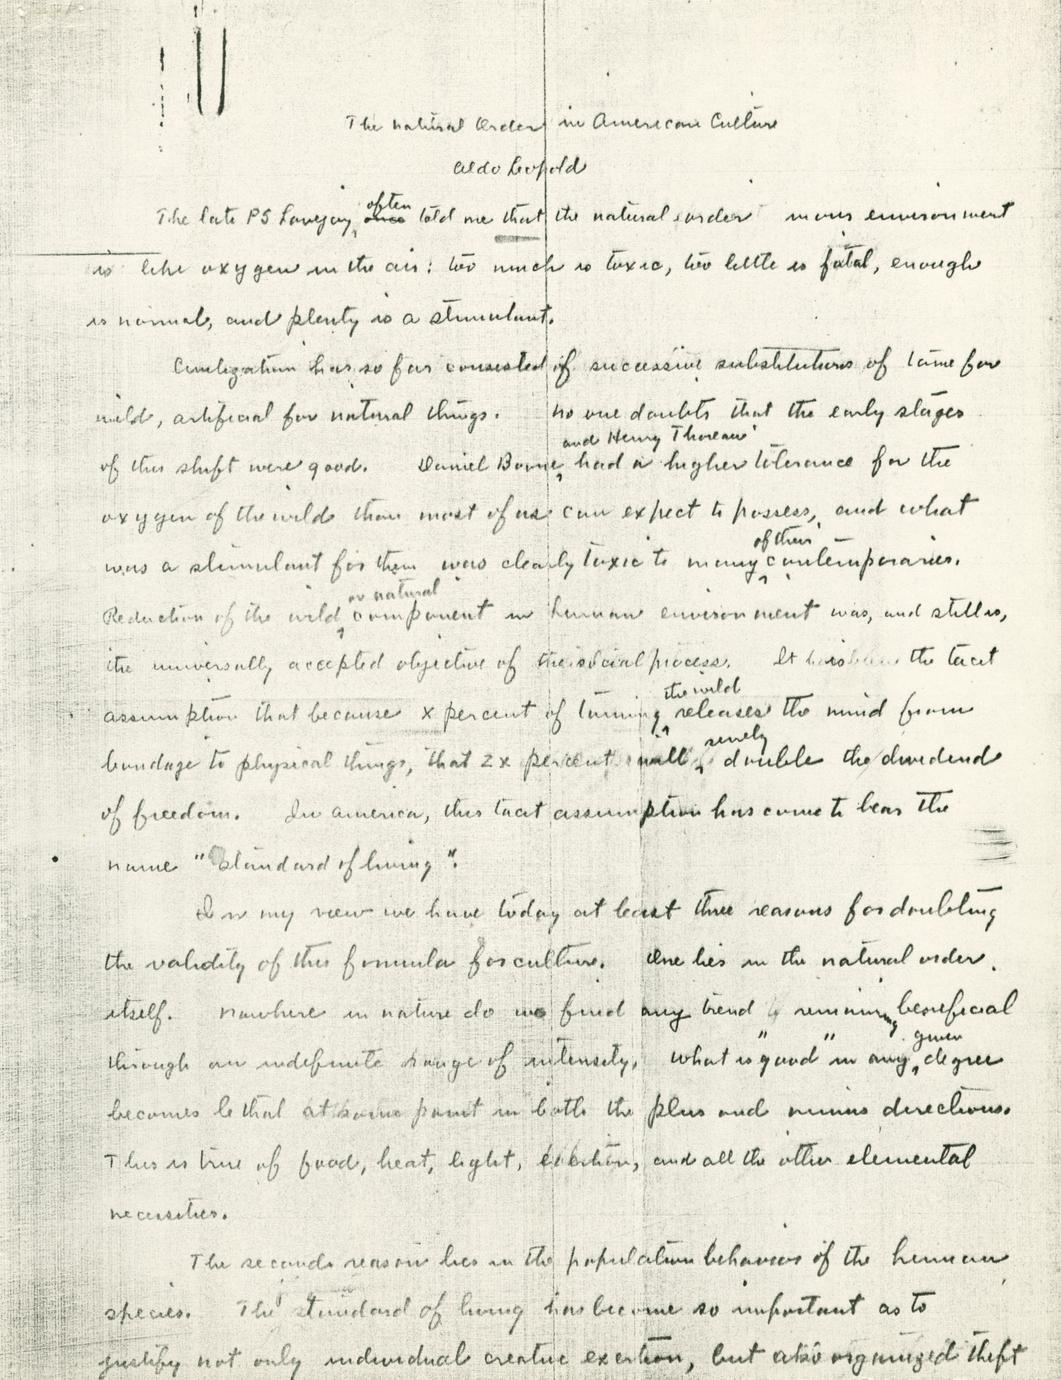 The natural Order in American Culture
Aldo Leopold
often
The late PS Lovejoy, once told me that the natural order in our environment
is like oxygen in the air: too much is toxic, too little is fatal, enough
is normal, and plenty is a stimulant.
Civilization has so far consisted of successive substitutions of tame for
wild, artificial for natural things. No one doubts that the early stages
and Henry Thoreau
of this shift were good. Daniel Boone, had a higher tolerance for the
oxygen of the wild than most of us can expect to possess, and what
of their
was a stimulant for them was clearly toxic to many contemporaries.
or natural
Reduction of the wild component in human environment was, and still is,
the universally accepted objective of the social process. It has been the tacit
the wild
assumption that because x percent of taming releases the mind from
surely
bondage to physical things, that 2x percent will double the dividend
of freedom. In America, this tacit assumption has come to bear the
name "Standard of living".
In my view we have today at least three reasons for doubting
the validity of this formula for culture. One lies in the natural order
itself. Nowhere in nature do we find any trend remaining beneficial
given
through an indefinite range of intensity. What is "good" in any degree
becomes lethal at some point in both the plus and minus directions.
This is true of food, heat, light, and all the other elemental
necessities.
The second reason lies in the population behavior of the human
species. The standard of living has become so important as to
justify not only individual creative exertion, but also organized theft